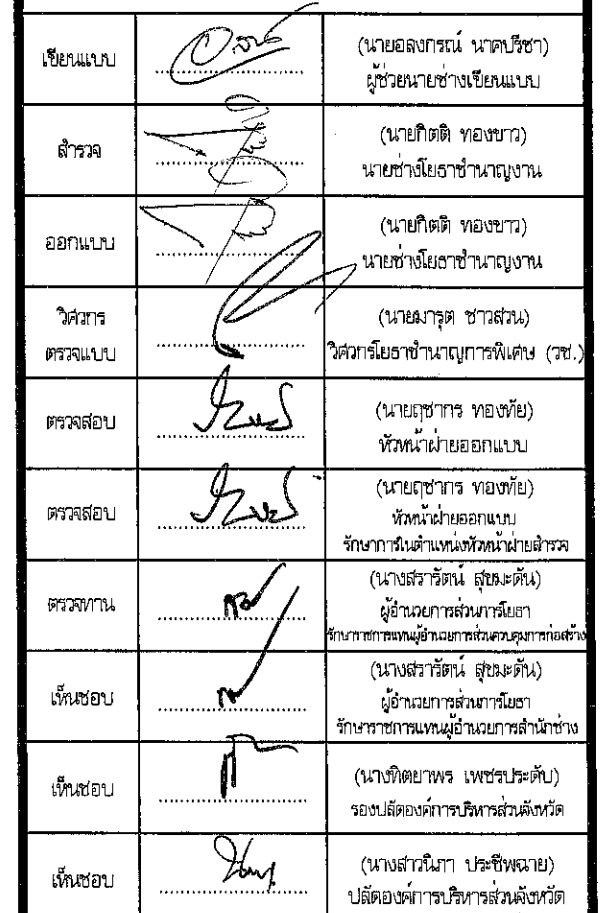 เขียนแบบ
(นายอลงกรณ์ นาคปรีชา)
ผู้ช่วยนายช่างเขียนแบบ
สำรวจ
(นายกิตติ ทองขาว)
นายช่างโยธาชำนาญงาน
ออกแบบ
(นายกิตติ ทองขาว)
นายช่างโยธาชำนาญงาน
วิศวกร
ตรวจแบบ
(นายมารุต ชาวสวน)
วิศวกรโยธาชำนาญการพิเศษ (วช.)
ตรวจสอบ
(นายฤชากร ทองทัย)
หัวหน้าฝ่ายออกแบบ
ตรวจสอบ
(นายฤชากร ทองทัย)
หัวหน้าฝ่ายออกแบบ
รักษาการในตำแหน่งหัวหน้าฝ่ายสำรวจ
ตรวจทาน
(นางสรารัตน์ สุขมะดัน)
ผู้อำนวยการส่วนการโยธา
รักษาราชการแทนผู้อำนวยการส่วนควบคุมการก่อสร้าง
เห็นชอบ
(นางสรารัตน์ สุขมะดัน)
ผู้อำนวยการส่วนการโยธา
รักษาราชการแทนผู้อำนวยการสำนักช่าง
เห็นชอบ
(นางทิตยาพร เพชรประดับ)
รองปลัดองค์การบริหารส่วนจังหวัด
เห็นชอบ
(นางสาวนิภา ประชีพฉาย)
ปลัดองค์การบริหารส่วนจังหวัด